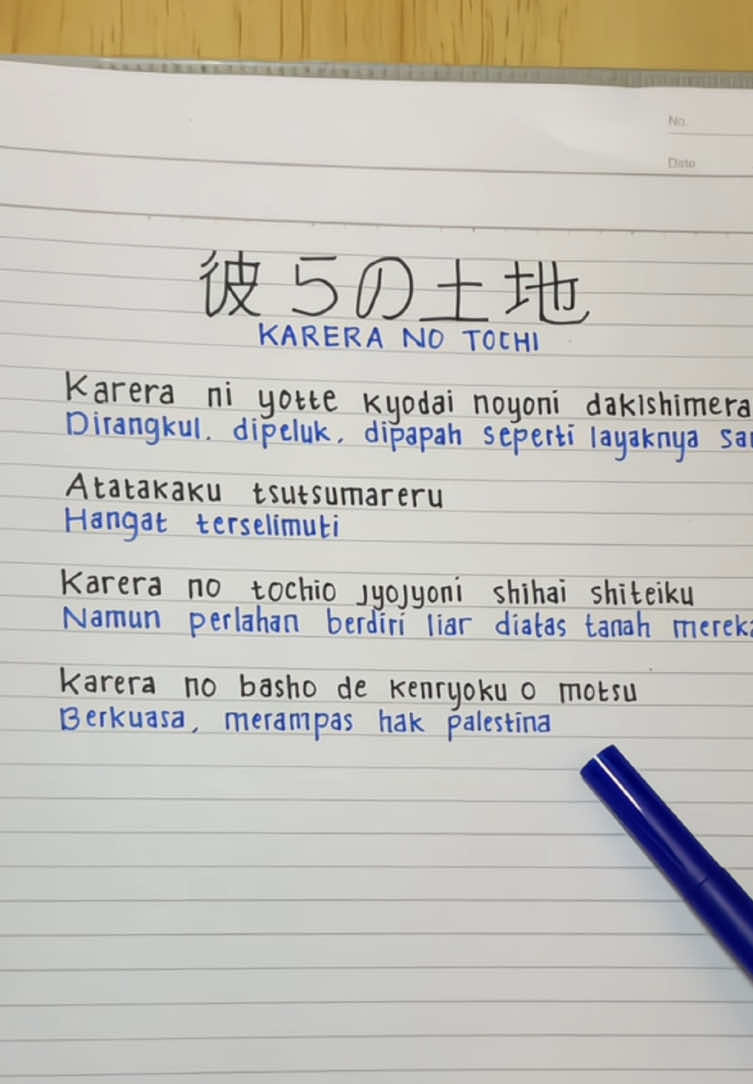 No.
Date
彼らの土地
KARERA NO TOCHI
Karera ni yotte kyodai noyoni dakishimera
Dirangkul, dipeluk, dipapah seperti layaknya
Atatakaku tsutsumareru
Hangat terselimuti
Karera no tochio jyojyoni shihai shiteiku
Namun perlahan berdiri liar diatas tanah merek
Karera no basho de kenryoku o motsu
Berkuasa, merampas hak palestina